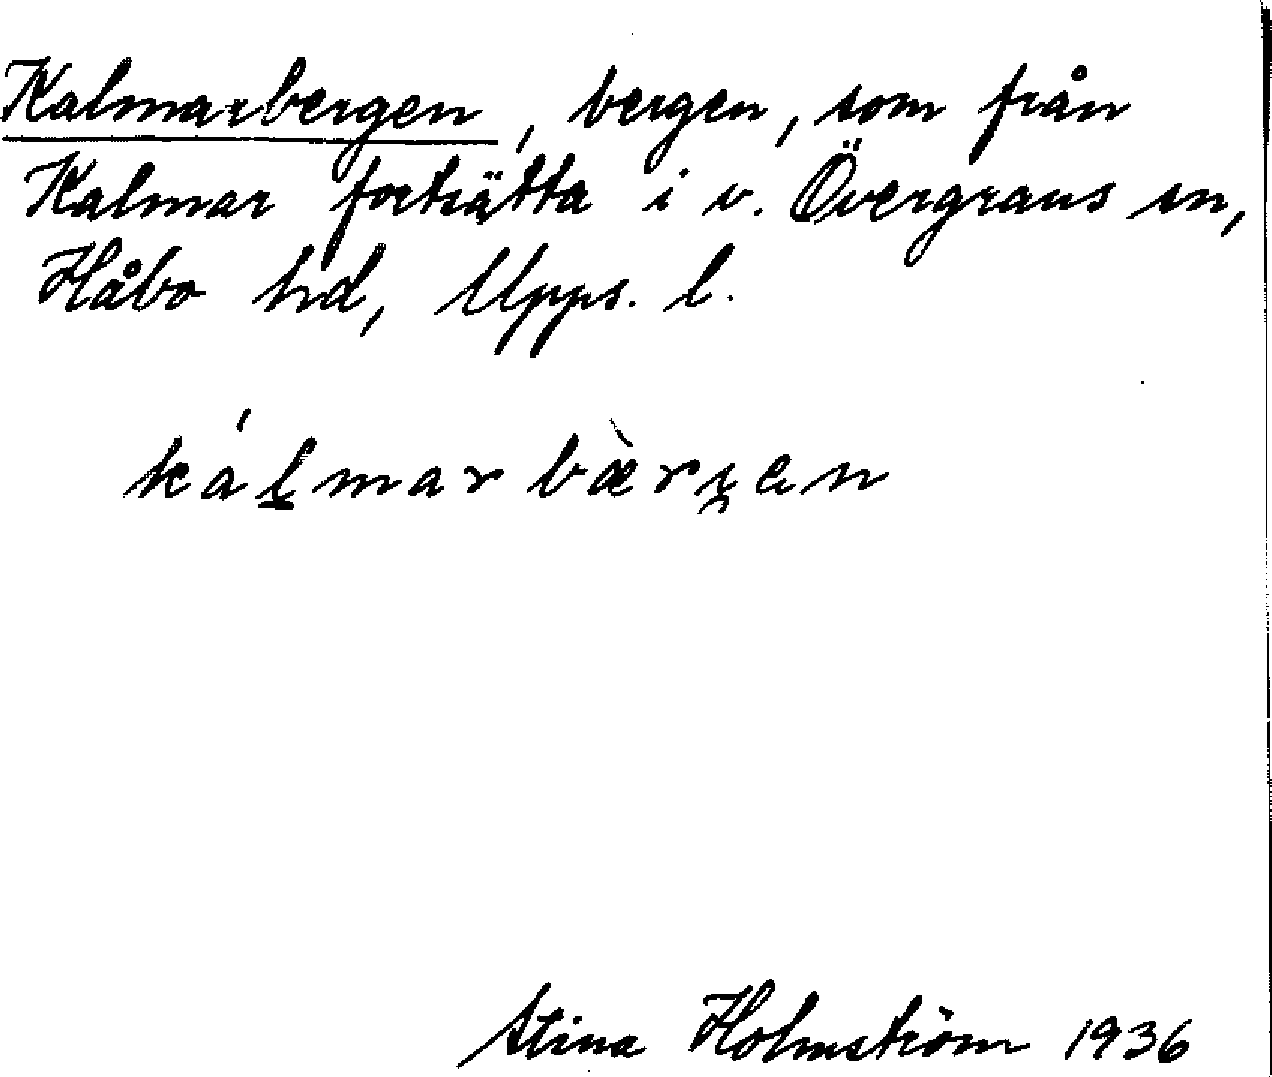 Kalmarbergen, bergen, som från
Kalmar fortsätta i v. Övergrans sn,
Håbo hd, Upps. l.
kálmarbæ̀rjen
Stina Holmström 1936